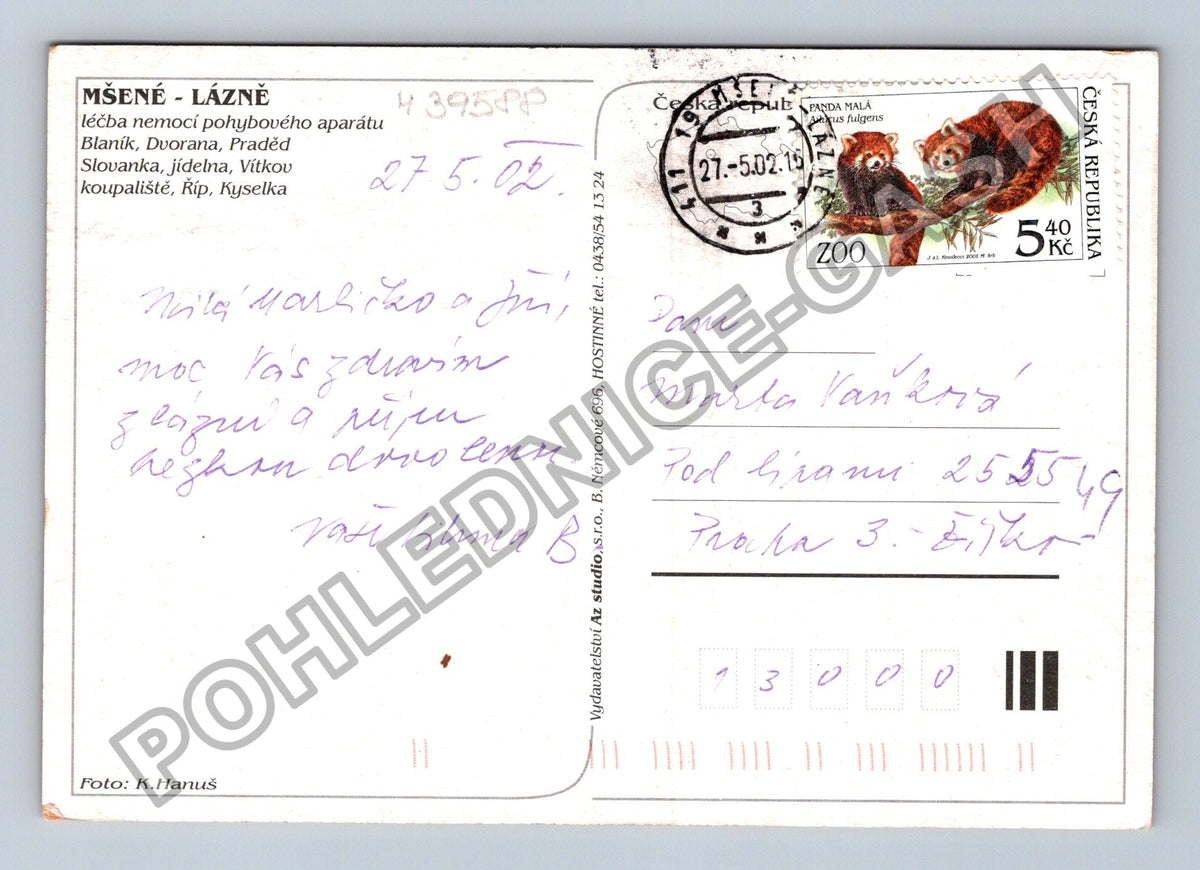 MŠENÉ - LÁZNĚ
léčba nemocí pohybového aparátu
Blaník, Dvorana, Praděd
Slovanka, jídelna, Vítkov
koupaliště, Říp, Kyselka
439588
27. 5. 02.
Milá Marličko a Jiří,
moc Vás zdravím
z lázní a přeju
hezkou dovolenou
Vaše B
Foto: K.Hanuš
Vydavatelství Az studio, s.r.o., B. Němcové 696, HOSTINNÉ tel.: 0438/54 13 24
Česká republ
411 19 MŠENÉ LÁZNĚ
27.-5.02.15
3
PANDA MALÁ
Ailurus fulgens
ZOO
J. a L. Knotkovi 2001 M. Srb
5 40 Kč
ČESKÁ REPUBLIKA
Paní
Marta Vaňková
Pod lipami 2555 49
Praha 3. - Žižkov
1 3 0 0 0
POHLEDNICE-GASH